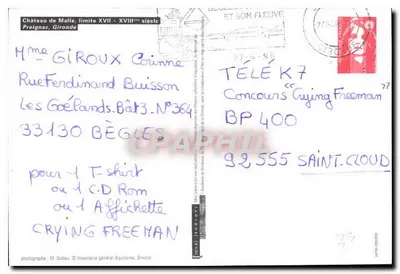 Château de Malle, limite XVII - XVIIIème siècle
Preignac, Gironde
ET SON FLEUVE
Mme GIROUX Corinne
Rue Ferdinand Buisson
Les Goélands. Bât 3 - N° 364
33130 BÈGLES
pour 1 T-shirt
ou 1 C.D Rom
ou 1 Affichette
CRYING FREEMAN
TÉLÉ K7
Concours "Crying Freeman"
BP 400
92555 SAINT-CLOUD
photographe : M. Dubau, © Inventaire général Aquitaine,